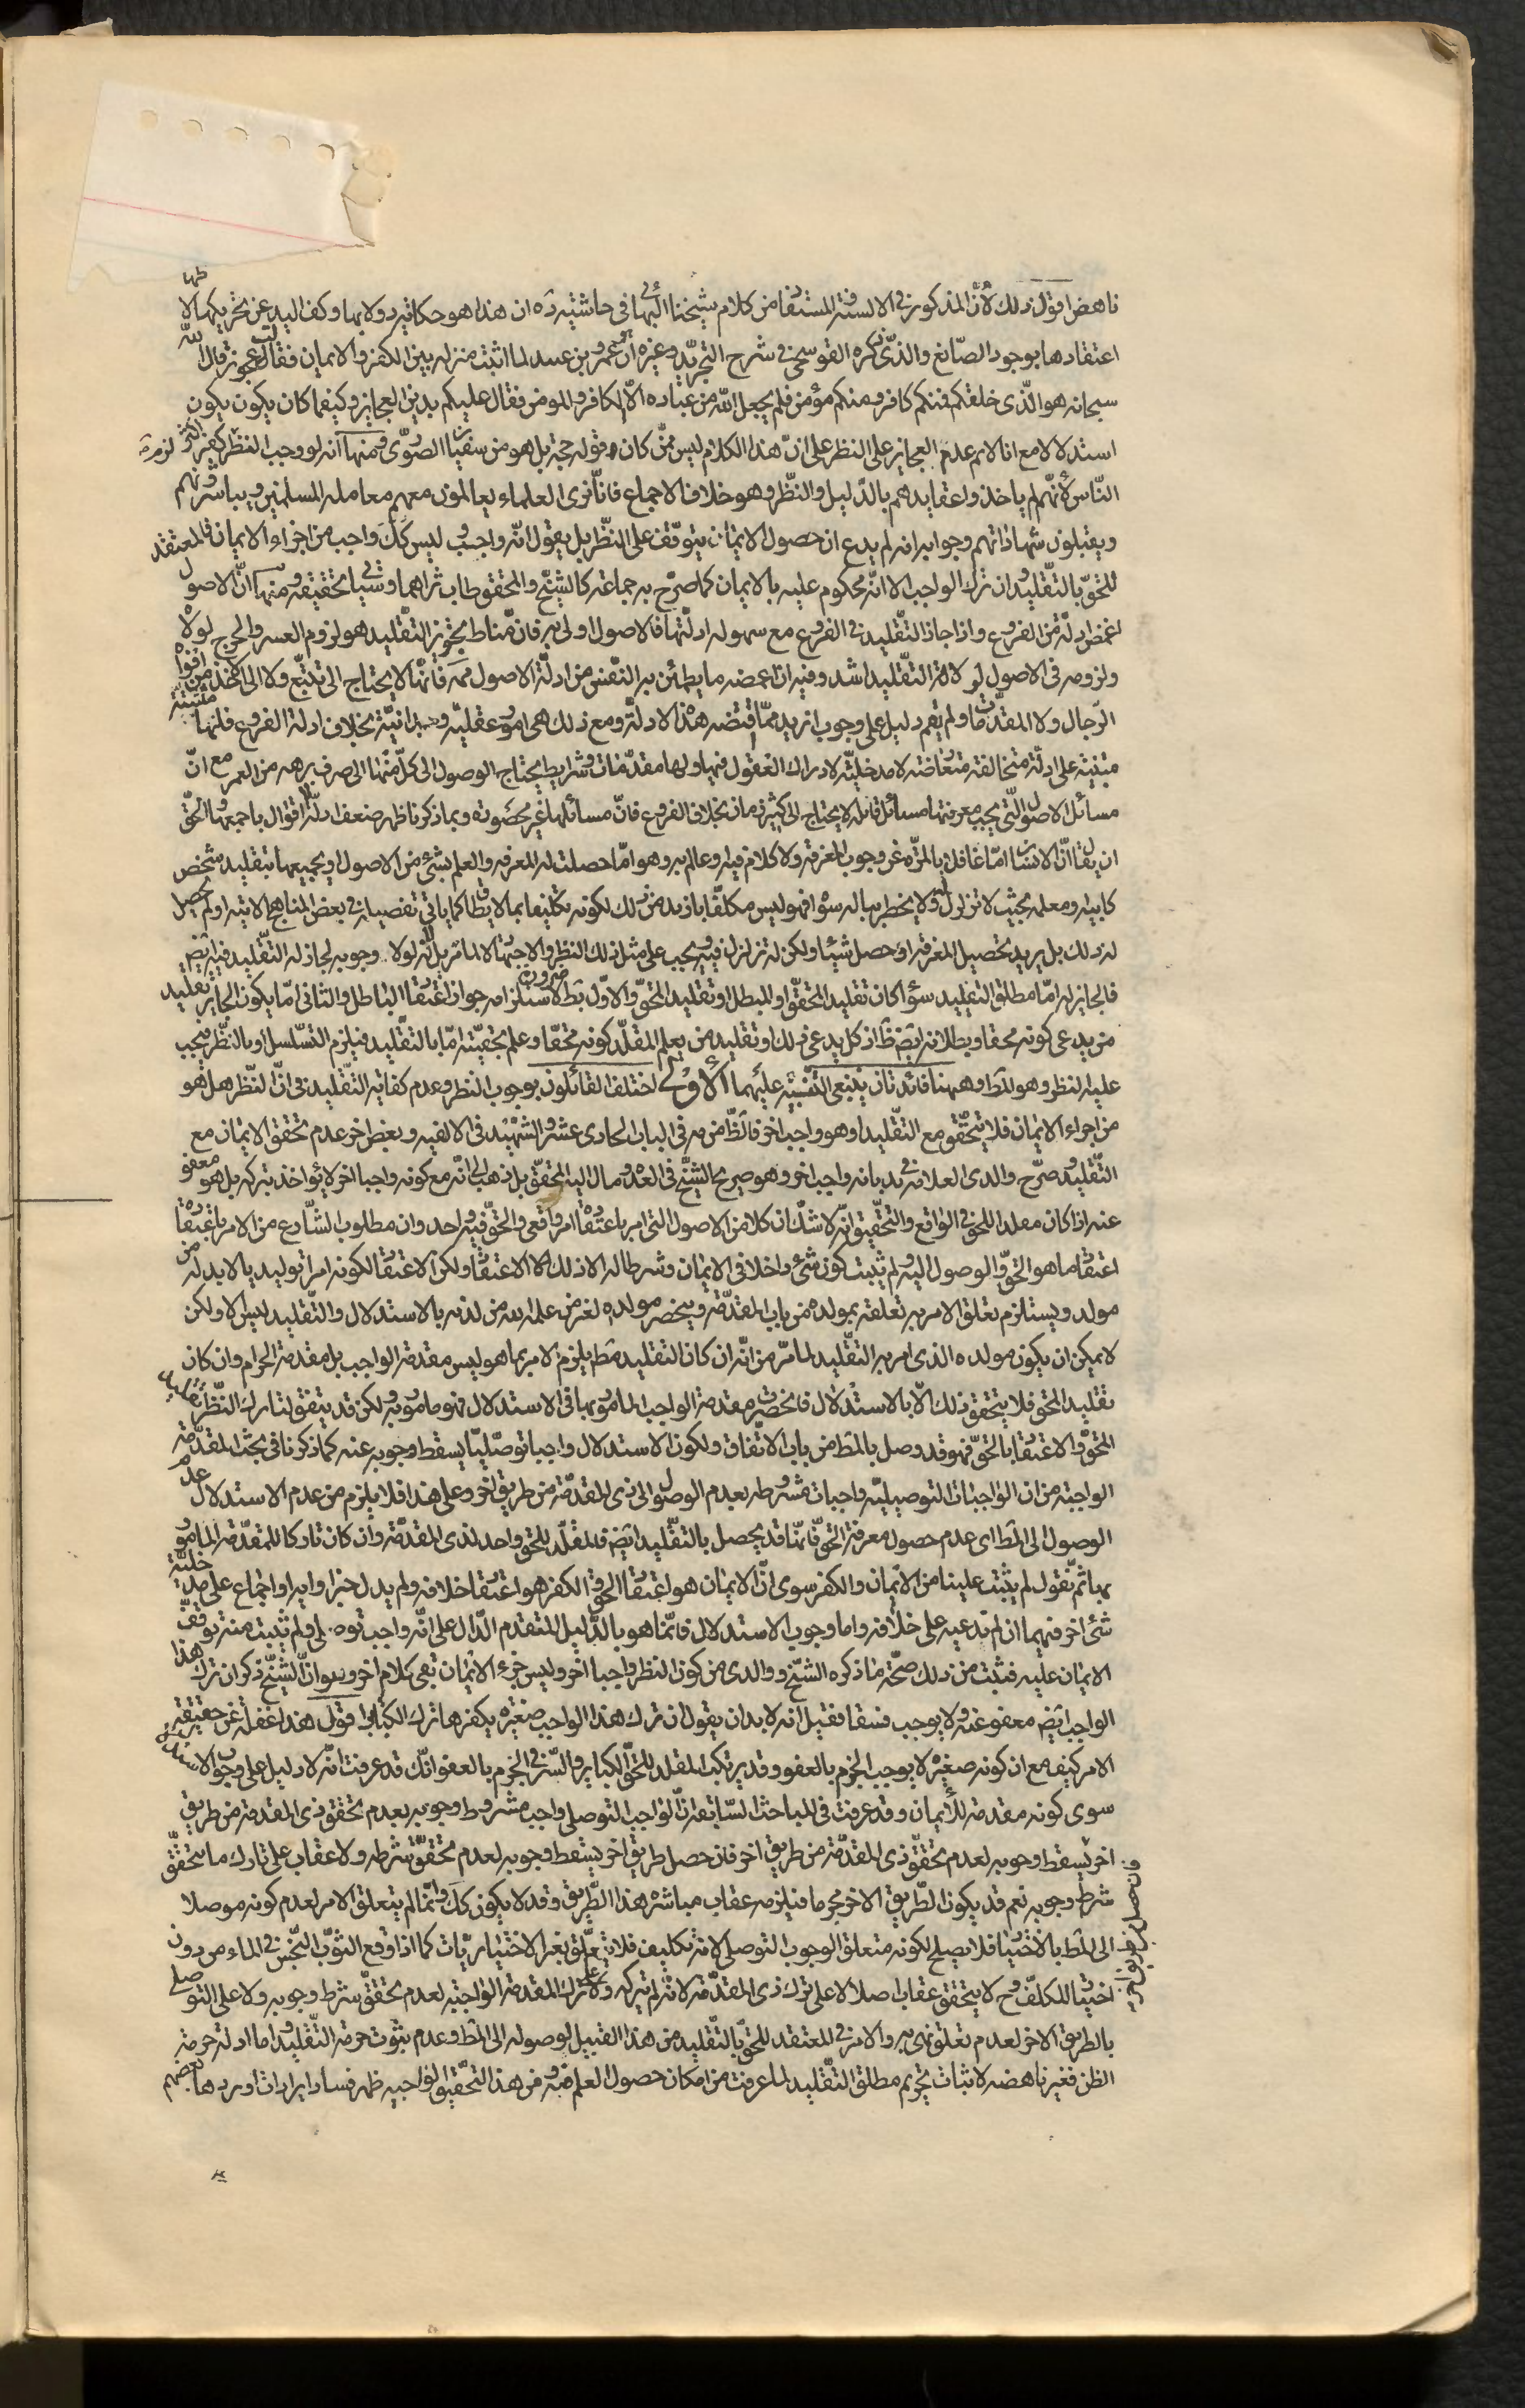 ناهض اقول ذلك لأنّ المذكور في الالسنة المستفا من كلام شيخنا البهائى فى حاشيته ده ان هذا هو حكاية دولابها وكف اليد عن تحريكها لا
اعتقادها بوجود الصّانع والذّى ذكره القوسجى في شرح التجريد وغيره ان عمرو بن عبيد لما اثبت منزله بين الكفر والايمان فقالت عجوز قال الله
سبحانه هو الّذى خلقكم فمنكم كافر ومنكم مؤمن فلم يجعل الله من عباده الّا الكافر والمومن فقال عليكم بدين العجايز وكيفما كان يكون يكون
استدلالا مع انا لا نم عدم العجايز على النظر على انّ هذا الكلام ليس ممّن كان قوله حجة بل هو من سفيان الصوّى ومنها انه لو وجب النظر لزم كفر اكثر
النّاس لأنّهم لم ياخذوا عقايدهم بالدّليل والنّظر وهو خلاف الاجماع فانّا نرى العلماء يعاملون معهم معاملة المسلمين ويباشرونهم
ويقبلون شهاداتهم وجوابه انه لم يدع ان حصول الايمان يتوقّف على النّظر بل يقول انّه واجب وليس كلّ واجب من اجزاء الايمان فالمعتقد
للحقّ بالتقليد وان ترك الواجب الا انّه محكوم عليه بالايمان كما صرّح به جماعة كالشيخ والمحقق طاب ثراهما وسيأتى تحقيقه ومنها انّ الاصول
اغمض ادلّة من الفروع واذا جاز التقليد في الفروع مع سهوله ادلّتها فالاصول اولى به فان مناط تجويز التقليد هو لزوم العسر والحرج لولاه
ولزومه فى الاصول لولا التقليد اشد وفيه ان اغمضه ما يطمئن به النّفس من ادلّة الاصول مم فانّها لا يحتاج الى تتبّع ولا الى الاخذ من افواه
الرّجال ولا المقدّمات ولم يقم دليل على وجوب ازيد ممّا اقتضه هذا الادلة ومع ذلك هى امور عقليّه وجدانيّة بخلاف ادلة الفروع فانها مبتنية
مبتنية على ادلّة متخالفة متعارضة لا مدخليّة لادراك العقول فيها ولها مقدّمات وشرايط يحتاج الوصول الى كلّ منها الى صرف برهه من العمر مع انّ
مسائل الاصول الّتى يجب معرفتها مسائل قليلة لا يحتاج الى كثير زمان بخلاف الفروع فانّ مسائلها غير محصورة وبما ذكرنا ظهر ضعف ادلّة الاقوال باجمعها والحقّ
ان يقال انّ الانسان امّا غافل بالمرّه عن وجوب المعرفة ولا كلام فيه او عالم به وهو امّا حصلت له المعرفه والعلم بشئ من الاصول او بجميعها بتقليد شخص
كابيه ومعلمه بحيث لا تزلزل له ولا يخطر بباله سؤا فهو ليس مكلّفا بازيد من ذلك لكونه تكليفا بما لا يطاق كما ياتى تفصيله في بعض المناهج الاتيه او لم يحصل
له ذلك بل يريد تحصيل المعرفة او حصل شيئا ولكن له تزلزل فيه ويجب على مثل ذلك النظر والاجتهاد لما مر بل لانّه لولا وجوبه لجاز له التّقليد فيه ايضم
فالجايز له امّا مطلق التقليد سؤا كان تقليد المحقّ او المبطل او تقليد المحقّ والاوّل بط لاستلزامه جواز اعتقاد الباطل والثانى امّا يكون الجايز تقليد
من يدعى كونه محقا وبطلانه ايضم ظ اذ كل يدعى ذلك او تقليد من يعلم المقلّد كونه محقّا وعلم بحقيّته امّا بالتقليد فيلزم التّسلسل او بالنّظر فيجب
عليه النظر وهو المط وههنا فائدتان ينبغى التّنبيه عليهما الاولى اختلف القائلون بوجوب النظر وعدم كفاية التّقليد في انّ النّظر هل هو
من اجزاء الايمان فلا يتحقّق مع التّقليد او هو واجب اخر فالظّ من مه فى الباب الحادى عشر والشهيد فى الالفيه وبعض اخر عدم تحقق الايمان مع
التّقليد وصرّح والدى العلامه فى بد بانه واجب اخر وهو صريح الشيخ فى العده ومال اليه المحقّق بل ذهب الى انّه مع كونه واجبا اخر لا يؤاخذ بتركه بل هو معفو
عنه اذا كان مقلدا للحق فى الواقع والتحقيق انّه لا شكّ ان كلا من الاصول التى امر باعتقاده امر واقعى والحقّ فيه واحد وان مطلوب الشّارع من الامر باعتقاده
اعتقاد ما هو الحقّ والوصول اليه ولم يثبت كون شئ داخلا فى الايمان وشرطا له الا ذلك الاعتقاد ولكن الاعتقاد لكونه امرا توليديا لا بد له من
مولد ويستلزم تعلق الامر به تعلقه بمولده من باب المقدّمة وينحصر مولده لغير من علمه الله من لدنه بالاستدلال والتّقليد ليس الا ولكن
لا يمكن ان يكون مولده الذى امر به التقّليد لما مرّ من انّه ان كان التقليد مط يلزم الامر بما هو ليس مقدمة الواجب بل مقدمة الحرام وان كان
تقليد المحق فلا يتحقق ذلك الّا بالاستدلال فانحصرت مقدمة الواجب المامور بها فى الاستدلال فهو مامور به ولكن قد يتفق لتارك النّظر تقليد
المحقّ والاعتقاد بالحقّ فهو قد وصل بالمط من باب الاتّفاق ولكون الاستدلال واجبا توصّليّا يسقط وجوبه عنه كما ذكرنا فى بحث المقدّمة
الواجبة من ان الواجبات التوصيليّه واجبات مشروطه بعدم الوصول الى ذى المقدّمة من طريق اخر وعلى هذا فلا يلزم من عدم الاستدلال عدم
الوصول الى المط اى عدم حصول معرفة الحقّ فانّها قد يحصل بالتقّليد ايضم فالمقلّد للحق واجد لذى المقدّمة وان كان تاركا للمقدّمة المامور
بها ثم نقول لم يثبت علينا من الايمان والكفر سوى انّ الايمان هو اعتقاد الحق والكفر هو اعتقاد خلافه ولم يدل خبر او ايه او اجماع على مدخليّة
شئ اخر فيهما ان لم ندعيه على خلافه واما وجوب الاستدلال فانّما هو بالدّليل المتقدم الّدال على انّه واجب توصلى ولم يثبت منه توقّف
الايمان عليه فثبت من ذلك صحّة ما ذكره الشيخ ووالدى من كون النظر واجبا اخر وليس جزء الايمان بقى كلام اخر وهو انّ الشّيخ ذكر ان ترك هذا
الواجب ايضم معفو عنه ولا يوجب فسقا فقيل انه لا بد ان يقول ان ترك هذا الواجب صغيره يكفرها ترك الكبائر اقول هذا غفلة عن حقيقة
الامر كيف مع ان كونه صغيره لا يوجب الجزم بالعفو وقد يرتكب المقلد للحقّ الكباير والسّرّ فى الجزم بالعفو انّك قد عرفت انّه لا دليل على وجوب الاستدلال
سوى كونه مقدمة للايمان وقد عرفت فى المباحث السّابقة انّ الواجب التوصلى واجب مشروط وجوبه بعدم تحقق ذى المقدمة من طريق
اخر يسقط وجوبه لعدم تحقّق ذى المقدّمة من طريق اخر فان حصل طريق اخر يسقط وجوبه لعدم تحقّق شرطه ولا عقاب على تارك ما يتحقّق
شرط وجوبه نعم قد يكون الطّريق الاخر محرما فيلزمه عقاب مباشره هذا الطّريق وقد لا يكون كك وانّما لم يتعلق الامر لعدم كونه موصلا
الى المط بالاختيار فلا يصلح لكونه متعلق الوجوب التوصلى لانه تكليف فلا يتعلّق بغير الاختياريّات كما اذا وقع الثّوب النّجس فى الماء من دون
اختيار للمكلّف وح لا يتحقق عقاب اصلا لا على ترك ذى المقدّمة لانّه لم يتركه ولا على ترك المقدمة الواجبة لعدم تحقّق شرط وجوبه ولا على التوصلى
بالطريق الاخر لعدم تعلق نهى به والامر فى المعتقد للحقّ بالتّقليد من هذا القبيل لوصوله الى المط وعدم ثبوت حرمة التّقليد واما ادلة حرمة
الظن فغير ناهضه لاثبات تحريم مطلق التّقليد لما عرفت من امكان حصول العلم منه ومن هذا التحقيق الواجبيه ظهر فساد ايرادات اوردها بعضهم